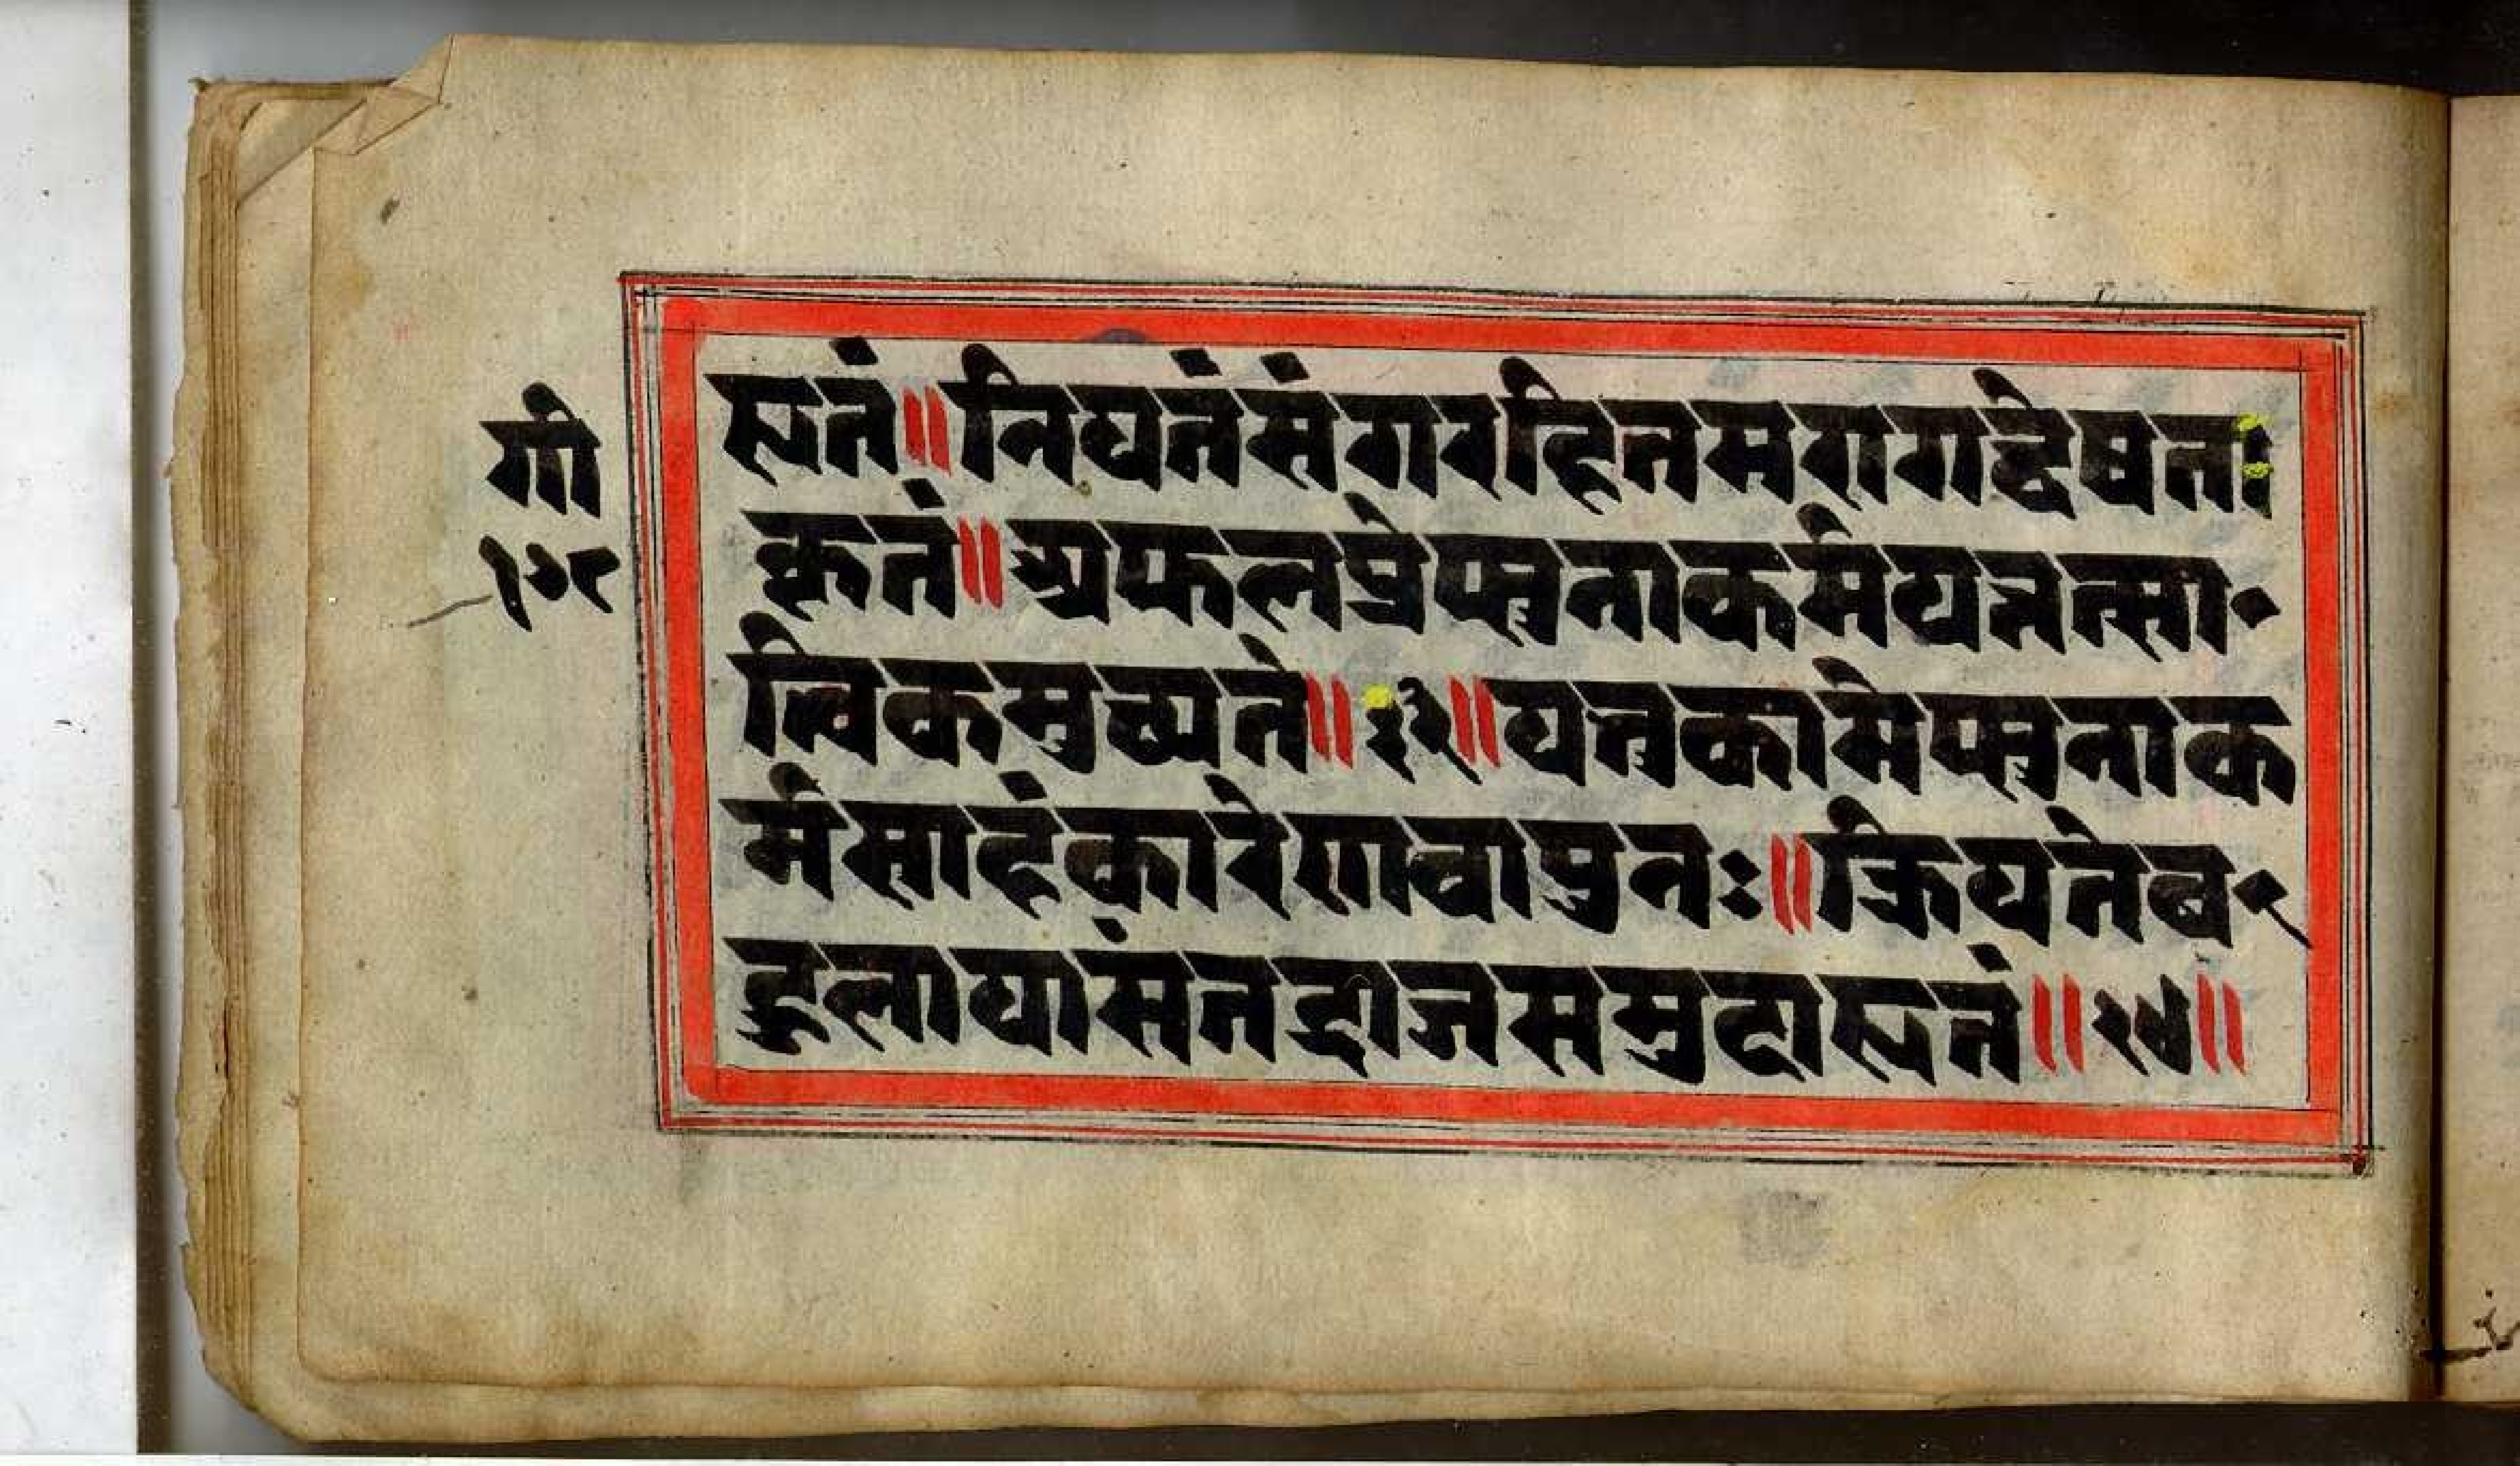 गी
१०८
हृतं॥नियतंसंगरहितमरागद्वेषतः
कृतं॥अफलप्रेप्सुनाकर्मयत्तत्सा॰
त्विकमुच्यते॥२३॥यत्तुकामेप्सुनाक
र्मसाहंकारेणवापुनः॥क्रियतेब॰
हुलायासंतद्राजसमुदाहृतं॥२४॥